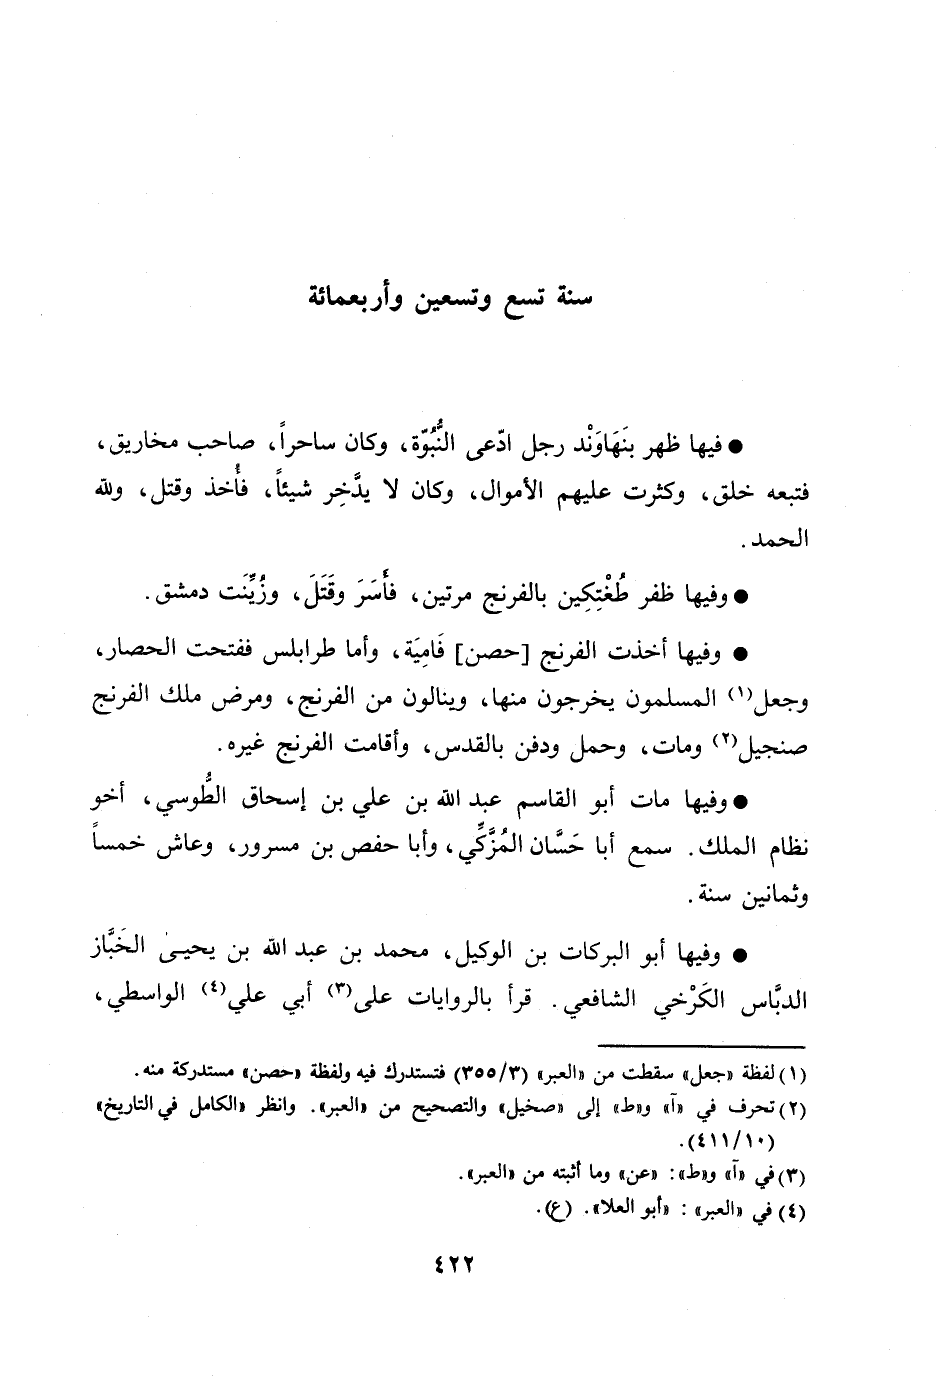 سنة تسع وتسعين وأربعمائة
● فيها ظهر بنَهَاوَنْد رجل ادّعى النُّبُوّة، وكان ساحراً، صاحب مخاريق،
فتبعه خلق، وكثرت عليهم الأموال، وكان لا يدَّخِر شيئاً، فأُخذ وقتل، ولله
الحمد.
● وفيها ظفر طُغْتِكِين بالفرنج مرتين، فأَسَرَ وقَتَلَ، وزُيِّنَت دمشق.
● وفيها أخذت الفرنج [حصن] فَامِيَة، وأما طرابلس ففتحت الحصار،
وجعل(١) المسلمون يخرجون منها، وينالون من الفرنج، ومرض ملك الفرنج
صنجيل(٢) ومات، وحمل ودفن بالقدس، وأقامت الفرنج غيره.
● وفيها مات أبو القاسم عبد الله بن علي بن إسحاق الطُّوسي، أخو
نظام الملك. سمع أبا حَسَّان المُزَّكِّي، وأبا حفص بن مسرور، وعاش خمساً
وثمانين سنة.
● وفيها أبو البركات بن الوكيل، محمد بن عبد الله بن يحيى الخَبَّاز
الدبَّاس الكَرْخي الشافعي. قرأ بالروايات على(٣) أبي علي(٤) الواسطي،
(١) لفظة «جعل» سقطت من «العبر» (٣/٣٥٥) فتستدرك فيه ولفظة «حصن» مستدركة منه.
(٢) تحرف في «آ» و«ط» إلى «صخيل» والتصحيح من «العبر». وانظر «الكامل في التاريخ»
(١٠/٤١١).
(٣) في «آ» و«ط»: «عن» وما أثبته من «العبر».
(٤) في «العبر» : «أبو العلا». (ع).
٤٢٢